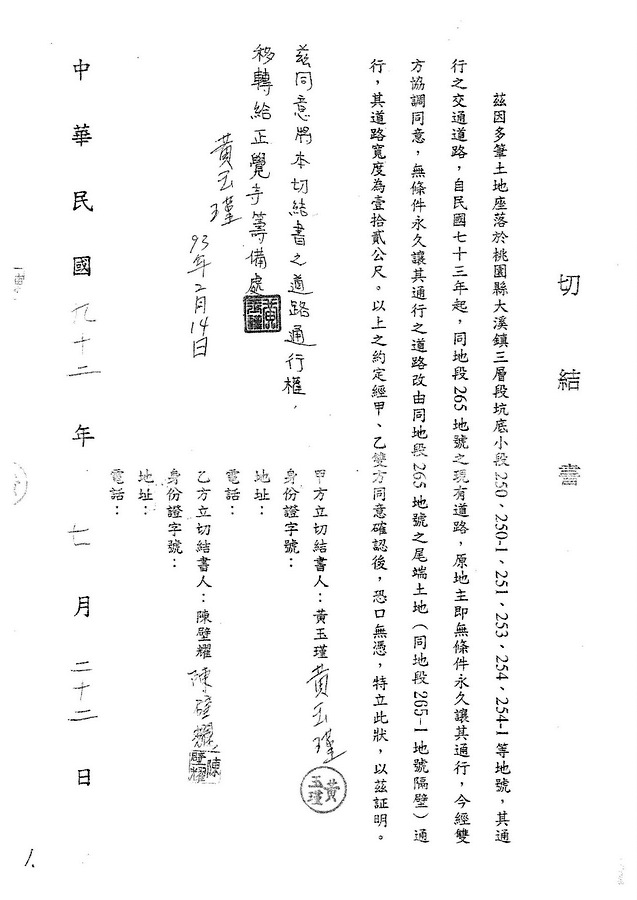 切結書
茲因多筆土地座落於桃園縣大溪鎮三層段坑底小段250、250-1、251、253、254、254-1等地號，其通
行之交通道路，自民國七十三年起，同地段265地號之現有道路，原地主即無條件永久讓其通行，今經雙
方協調同意，無條件永久讓其通行之道路改由同地段265地號之尾端土地（同地段265-1地號隔壁）通
行，其道路寬度為壹拾貳公尺。以上之約定經甲、乙雙方同意確認後，恐口無憑，特立此狀，以茲証明。
甲方立切結書人：黃玉瑾 黃玉瑾
黃玉瑾
身份證字號：
地址：
電話：
乙方立切結書人：陳壁耀 陳壁耀
陳壁耀
身份證字號：
地址：
電話：
茲同意將本切結書之道路通行權，
移轉給正覺寺籌備處
黃玉瑾
93年2月14日
中華民國九十二年七月二十二日
1.